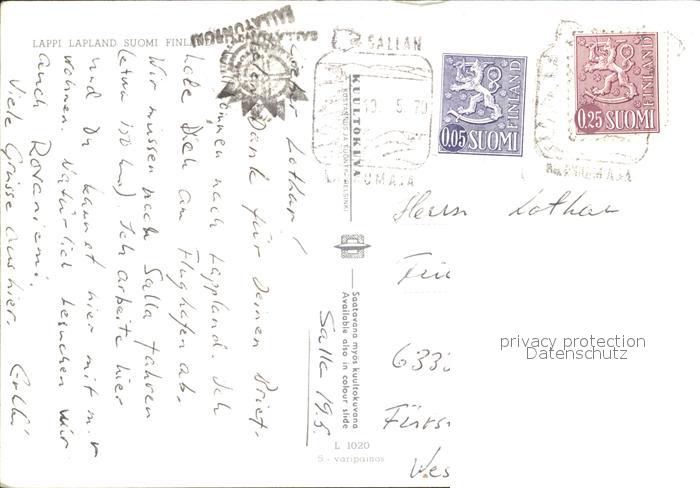 LAPPI LAPLAND SUOMI FINL
SALLATUNTURI
SALLAN
19. 5. 70
MAJA
KUULTOKUVA
HELSINKI
0.05 SUOMI
FINLAND
0.25 SUOMI
FINLAND
Salla 19.5.
Lieber Lothar!
Vielen Dank für Deinen Brief.
kommen nach Lappland. Ich
hole Dich am Flughafen ab.
Wir müssen nach Salla fahren
(etwa 150 km) Ich arbeite hier
und Du kannst hier mit mir
wohnen. Natürlich besuchen wir
auch Rovaniemi.
Viele Grüsse aus hier.
Herrn Lothar
633
Wes
Saatavana myös kuultokuvana
Available also in colour slide
L 1020
5 - varipainos
privacy protection
Datenschutz